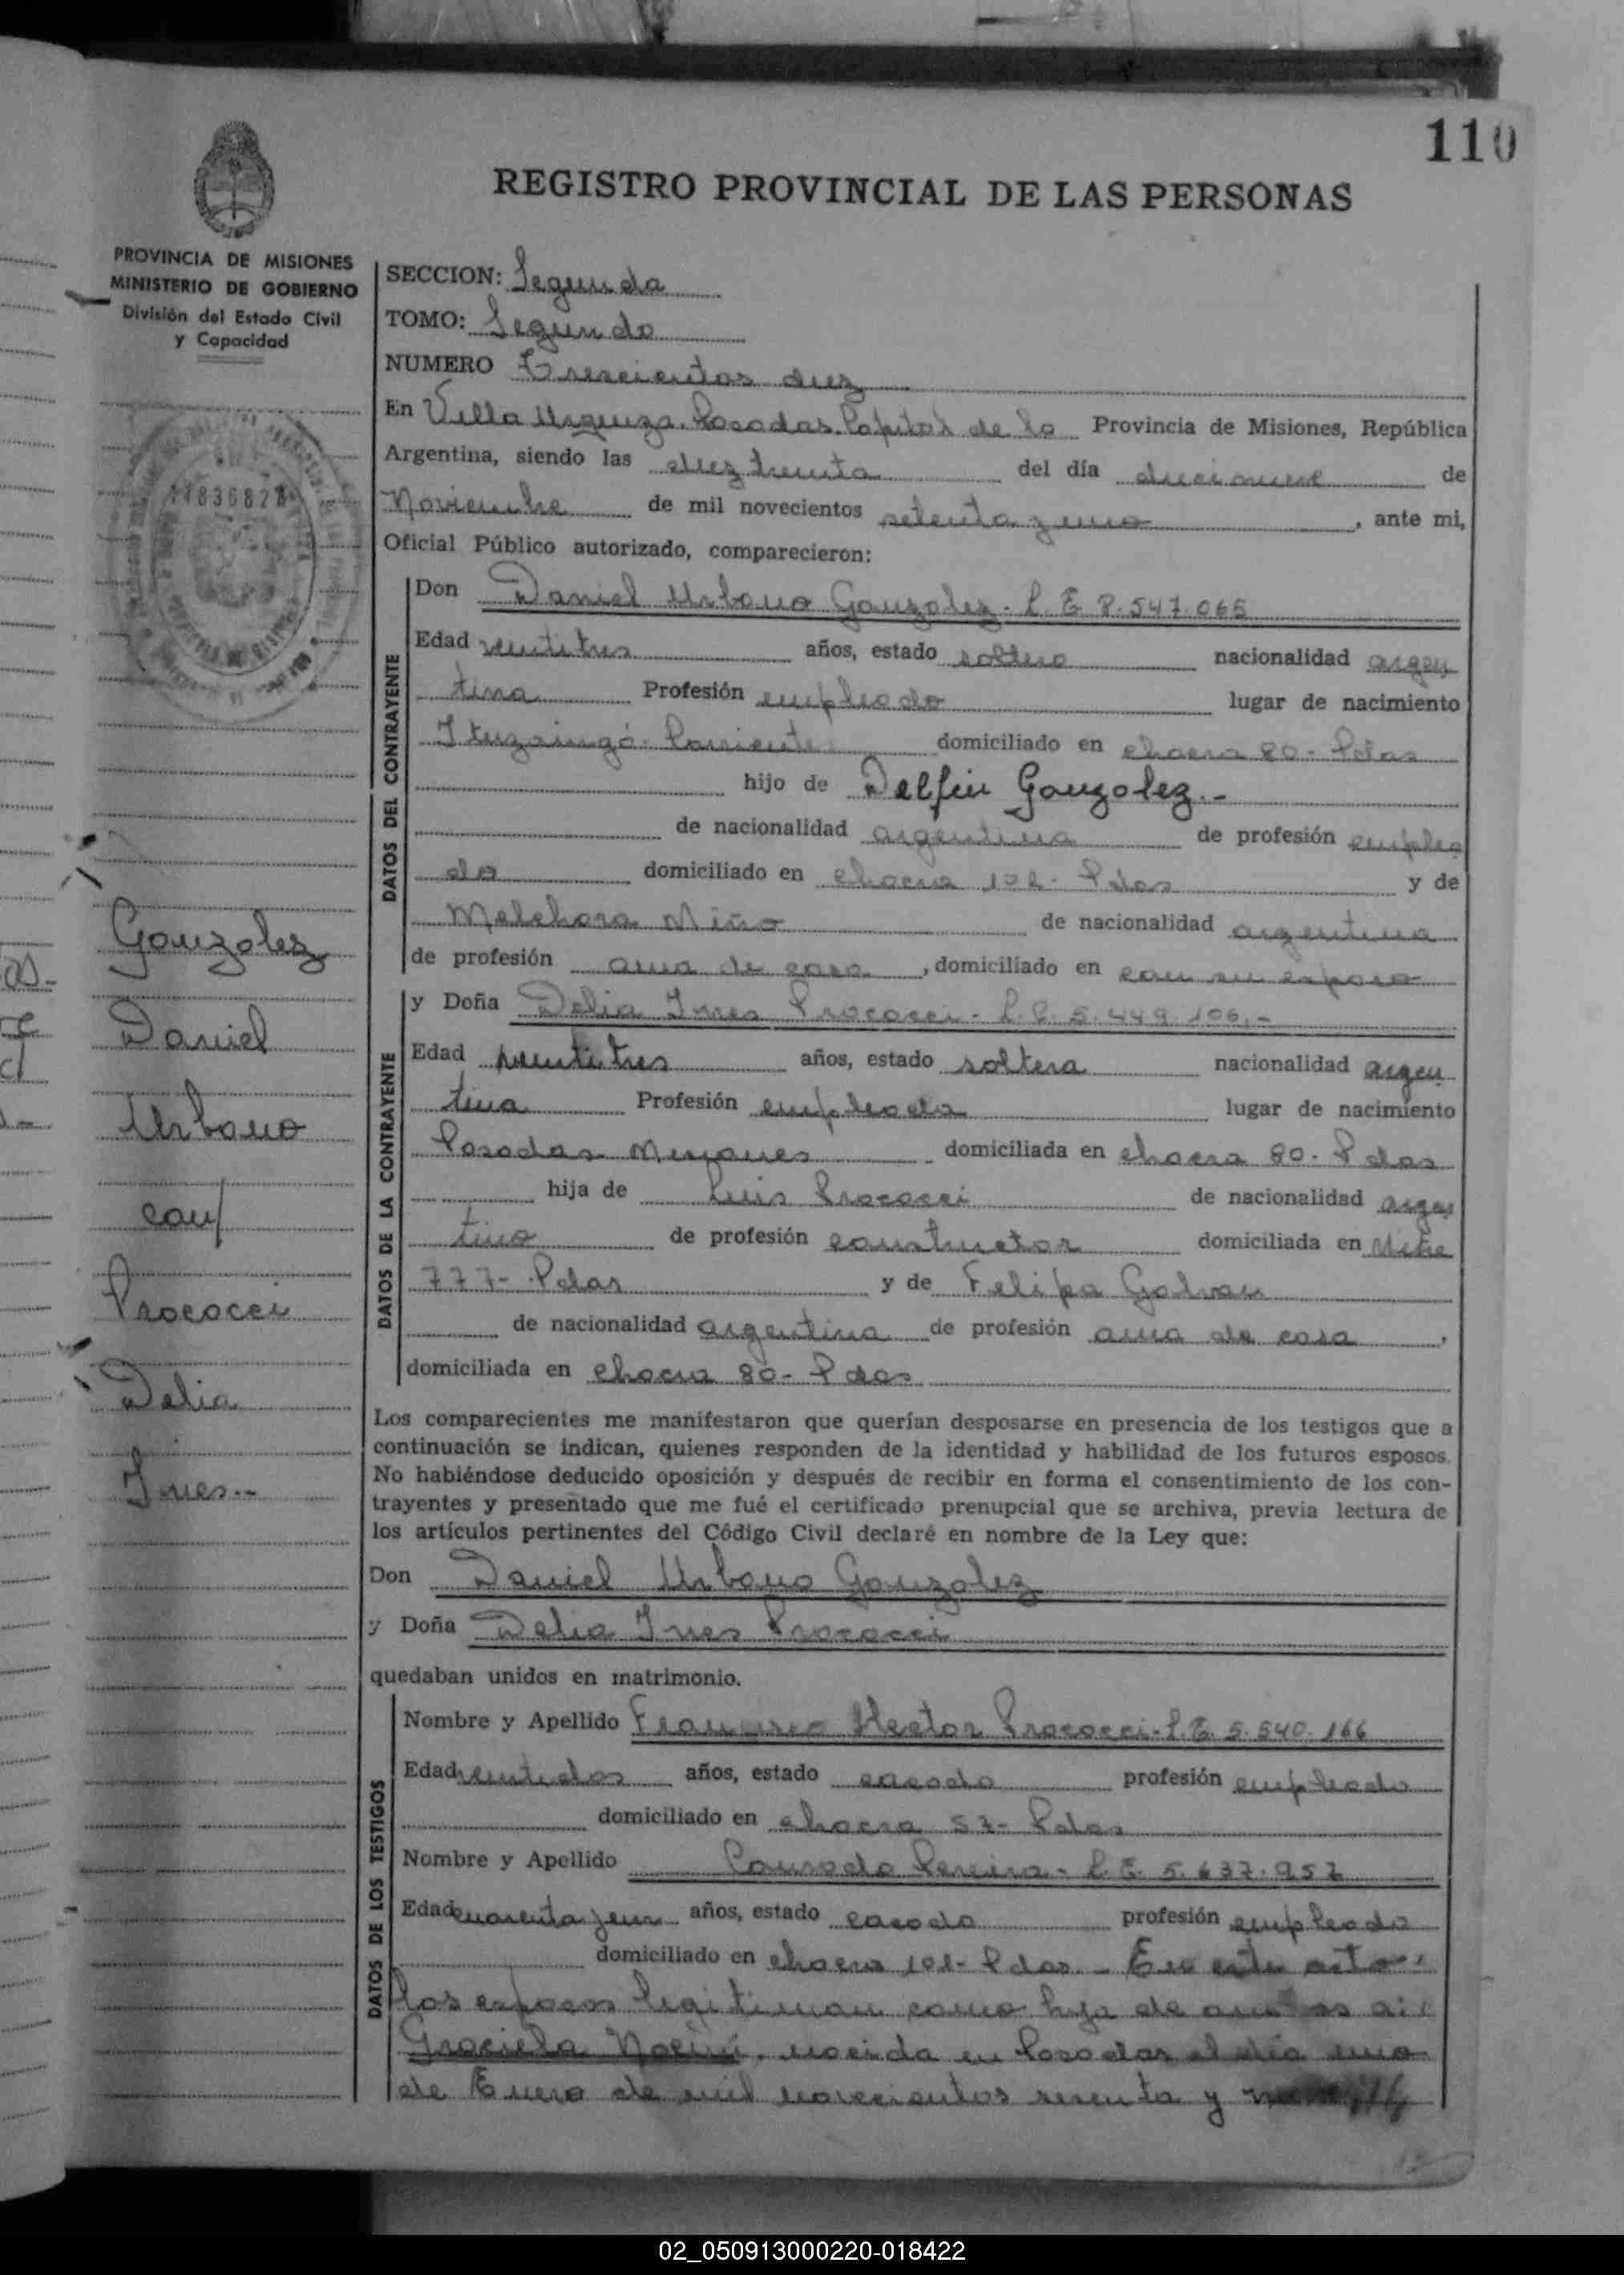 110
REGISTRO PROVINCIAL DE LAS PERSONAS
PROVINCIA DE MISIONES
MINISTERIO DE GOBIERNO
División del Estado Civil
y Capacidad
11836828
SECCION: Segunda
TOMO: Segundo
NUMERO Trescientos diez
En Villa Urquiza. Posadas. Capital de la Provincia de Misiones, República
Argentina, siendo las diez treinta del día diecinueve de
Noviembre de mil novecientos setenta y uno, ante mi,
Oficial Público autorizado, comparecieron:
DATOS DEL CONTRAYENTE
Don Daniel Urbano Gonzalez - L. E 8.547.065
Edad veintitres años, estado soltero nacionalidad argen
tina Profesión empleado lugar de nacimiento
Ituzaingó - Corrientes domiciliado en chacra 80 - Pdas
hijo de Delfin Gonzalez.-
de nacionalidad argentina de profesión emplea
do domiciliado en chacra 102 - Pdas y de
Melchora Miño de nacionalidad argentina
de profesión ama de casa, domiciliado en con su esposo
DATOS DE LA CONTRAYENTE
y Doña Delia Ines Prococci - L.C. 5.449.106.-
Edad veintitres años, estado soltera nacionalidad argen
tina Profesión empleada lugar de nacimiento
Posadas Misiones domiciliada en chacra 80 - Pdas
hija de Luis Prococci de nacionalidad argen
tino de profesión constructor domiciliada en Mitre
777 - Pdas y de Felipa Galvan
de nacionalidad argentina de profesión ama de casa,
domiciliada en chacra 80 - Pdas
Los comparecientes me manifestaron que querían desposarse en presencia de los testigos que a
continuación se indican, quienes responden de la identidad y habilidad de los futuros esposos.
No habiéndose deducido oposición y después de recibir en forma el consentimiento de los con-
trayentes y presentado que me fué el certificado prenupcial que se archiva, previa lectura de
los artículos pertinentes del Código Civil declaré en nombre de la Ley que:
Don Daniel Urbano Gonzalez
y Doña Delia Ines Prococci
quedaban unidos en matrimonio.
DATOS DE LOS TESTIGOS
Nombre y Apellido Francisco Hector Prococci - L.E. 5.540.166
Edad veintidos años, estado casado profesión empleado
domiciliado en chacra 57 - Pdas
Nombre y Apellido Conrado Pereira - L.E. 5.637.957
Edad cuarenta y un años, estado casado profesión empleado
domiciliado en chacra 102 - Pdas - En este acto
los esposos legitiman como hija de ambos a:
Graciela Noemí, nacida en Posadas el día uno
de Enero de mil novecientos sesenta y
Gonzalez
Daniel
Urbano
con/
Prococci
Delia
Ines.-
02_050913000220-018422